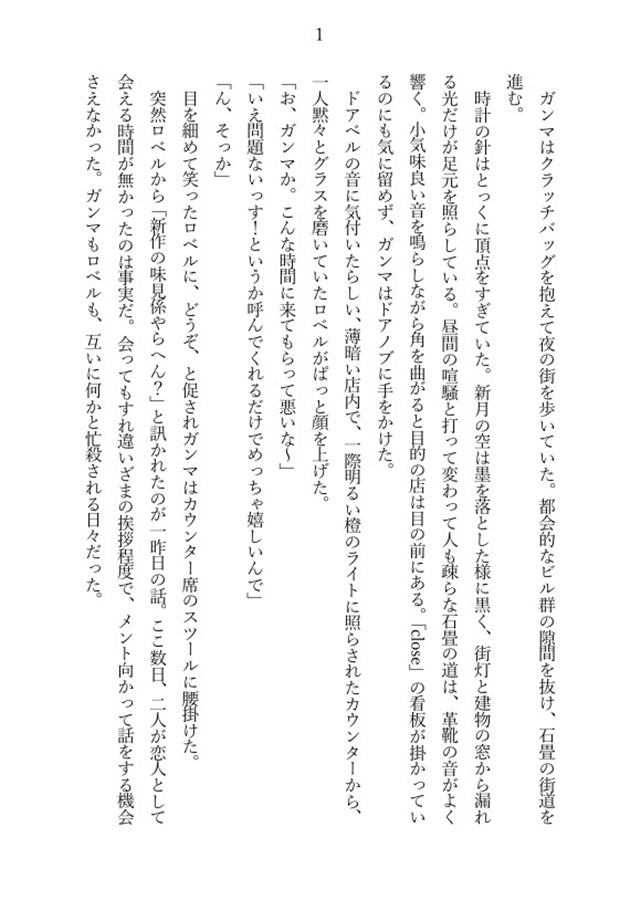 1
ガンマはクラッチバッグを抱えて夜の街を歩いていた。都会的なビル群の隙間を抜け、石畳の街道を
進む。
時計の針はとっくに頂点をすぎていた。新月の空は墨を落とした様に黒く、街灯と建物の窓から漏れ
る光だけが足元を照らしている。昼間の喧騒と打って変わって人も疎らな石畳の道は、革靴の音がよく
響く。小気味良い音を鳴らしながら角を曲がると目的の店は目の前にある。「close」の看板が掛かってい
るのにも気に留めず、ガンマはドアノブに手をかけた。
ドアベルの音に気付いたらしい、薄暗い店内で、一際明るい橙のライトに照らされたカウンターから、
一人黙々とグラスを磨いていたロベルがぱっと顔を上げた。
「お、ガンマか。こんな時間に来てもらって悪いな〜」
「いえ問題ないっす！というか呼んでくれるだけでめっちゃ嬉しいんで」
「ん、そっか」
目を細めて笑ったロベルに、どうぞ、と促されガンマはカウンター席のスツールに腰掛けた。
突然ロベルから「新作の味見係やらへん？」と訊かれたのが一昨日の話。ここ数日、二人が恋人として
会える時間が無かったのは事実だ。会ってもすれ違いざまの挨拶程度で、メント向かって話をする機会
さえなかった。ガンマもロベルも、互いに何かと忙殺される日々だった。